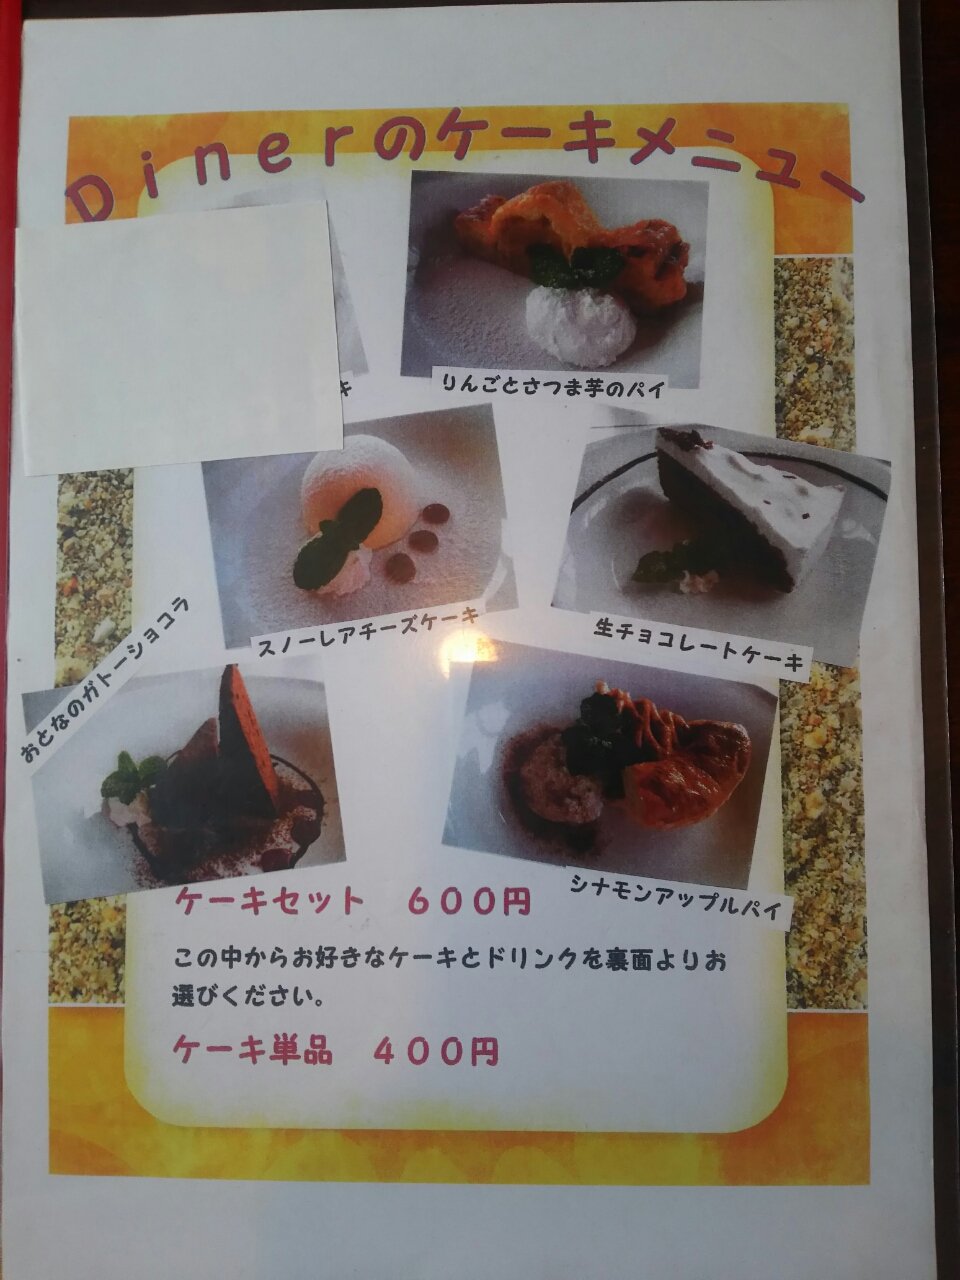 Dinerのケーキメニュー
キ
りんごとさつま芋のパイ
スノーレアチーズケーキ
生チョコレートケーキ
おとなのガトーショコラ
シナモンアップルパイ
ケーキセット　６００円
この中からお好きなケーキとドリンクを裏面よりお
選びください。
ケーキ単品　４００円